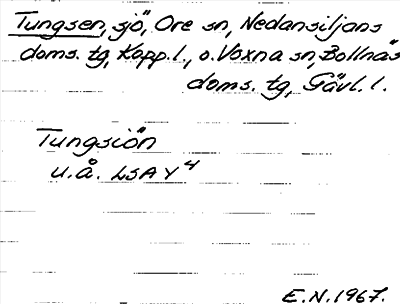 Tungsen, sjö, Ore sn, Nedansiljans
doms. tg, Kopp. l., o. Voxna sn, Bollnäs
doms. tg, Gävl. l.
Tungsiön
u.å. LSA Y 4
E.N. 1967.